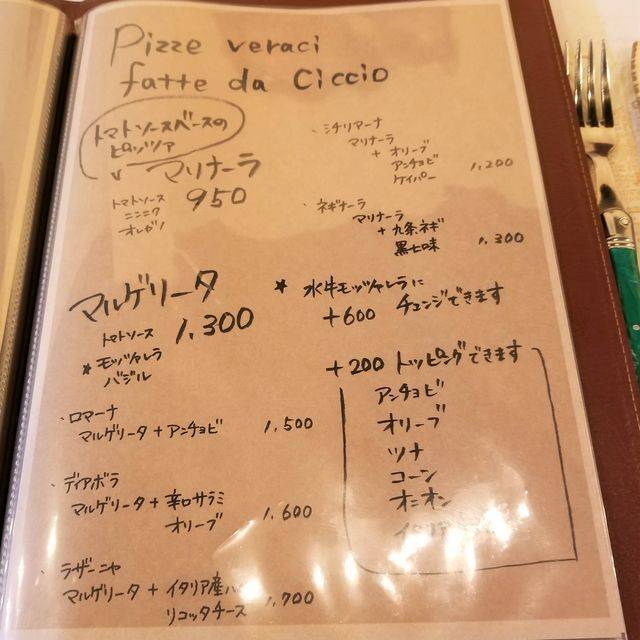 Pizze veraci
fatte da Ciccio
トマトソースベースの
ピッツァ
マリナーラ
950
トマトソース
ニンニク
オレガノ
・シチリアーナ
マリナーラ
+ オリーブ
アンチョビ
ケイパー
1,200
・ネギナーラ
マリナーラ
+ 九条ネギ
黒七味
1,300
マルゲリータ
1,300
トマトソース
★ モッツァレラ
バジル
★ 水牛モッツァレラに
+600 チェンジできます
・ロマーナ
マルゲリータ + アンチョビ 1,500
・ディアボラ
マルゲリータ + 辛口サラミ
オリーブ 1,600
・ラザーニャ
マルゲリータ + イタリア産ハム
リコッタチーズ 1,700
+200 トッピングできます
アンチョビ
オリーブ
ツナ
コーン
オニオン